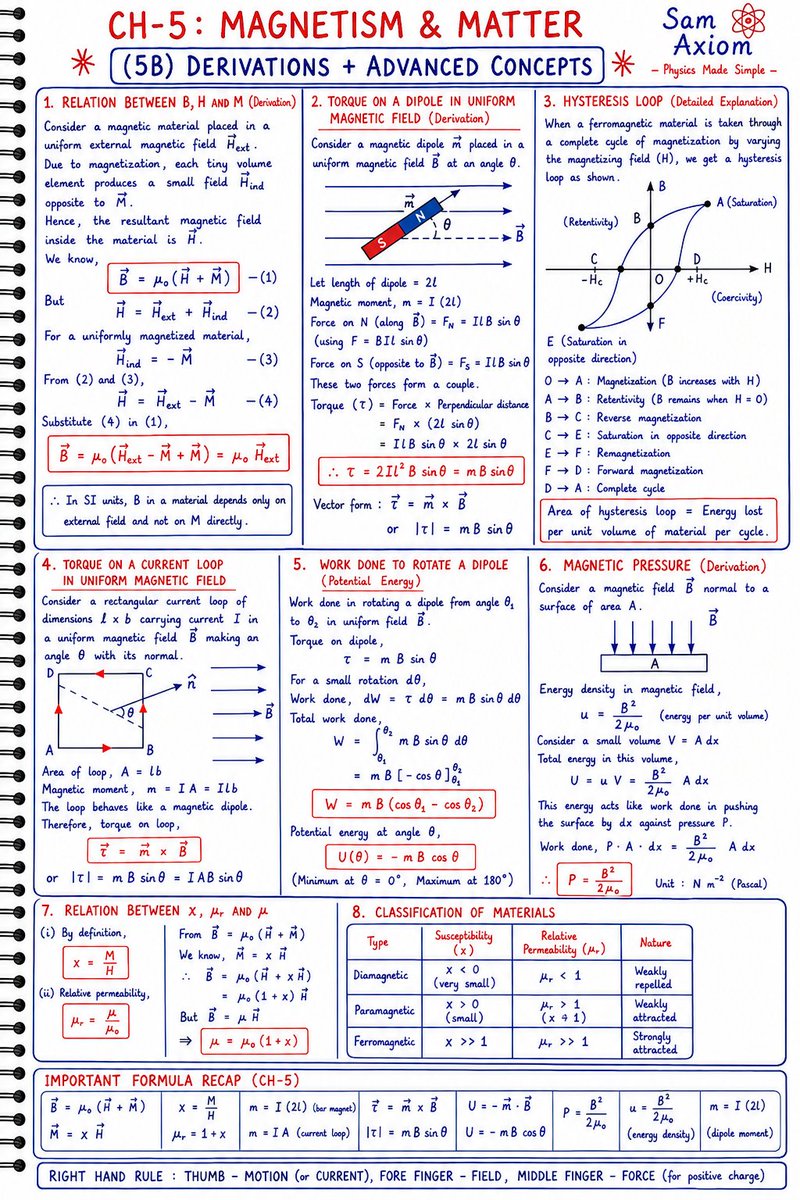 CH-5: MAGNETISM & MATTER
(5B) DERIVATIONS + ADVANCED CONCEPTS
Sam
Axiom
– Physics Made Simple –
1. RELATION BETWEEN B, H AND M (Derivation)
Consider a magnetic material placed in a
uniform external magnetic field H⃗ext.
Due to magnetization, each tiny volume
element produces a small field H⃗ind
opposite to M⃗.
Hence, the resultant magnetic field
inside the material is H⃗.
We know,
B⃗ = μ₀(H⃗ + M⃗) –(1)
But
H⃗ = H⃗ext + H⃗ind –(2)
For a uniformly magnetized material,
H⃗ind = - M⃗ –(3)
From (2) and (3),
H⃗ = H⃗ext - M⃗ –(4)
Substitute (4) in (1),
B⃗ = μ₀(H⃗ext - M⃗ + M⃗) = μ₀ H⃗ext
∴ In SI units, B in a material depends only on
external field and not on M directly.
2. TORQUE ON A DIPOLE IN UNIFORM
MAGNETIC FIELD (Derivation)
Consider a magnetic dipole m⃗ placed in a
uniform magnetic field B⃗ at an angle θ.
m⃗
N
S
θ
B⃗
Let length of dipole = 2l
Magnetic moment, m = I (2l)
Force on N (along B⃗) = F_N = IlB sin θ
(using F = BIl sin θ)
Force on S (opposite to B⃗) = F_S = IlB sin θ
These two forces form a couple.
Torque (τ) = Force × Perpendicular distance
= F_N × (2l sin θ)
= IlB sin θ × 2l sin θ
∴ τ = 2Il² B sin θ = mB sin θ
Vector form : τ⃗ = m⃗ × B⃗
or |τ| = mB sin θ
3. HYSTERESIS LOOP (Detailed Explanation)
When a ferromagnetic material is taken through
a complete cycle of magnetization by varying
the magnetizing field (H), we get a hysteresis
loop as shown.
B
A (Saturation)
(Retentivity)
B
C
D
-Hc
O
+Hc
H
(Coercivity)
F
E (Saturation in
opposite direction)
O → A : Magnetization (B increases with H)
A → B : Retentivity (B remains when H = 0)
B → C : Reverse magnetization
C → E : Saturation in opposite direction
E → F : Remagnetization
F → D : Forward magnetization
D → A : Complete cycle
Area of hysteresis loop = Energy lost
per unit volume of material per cycle.
4. TORQUE ON A CURRENT LOOP
IN UNIFORM MAGNETIC FIELD
Consider a rectangular current loop of
dimensions l × b carrying current I in
a uniform magnetic field B⃗ making an
angle θ with its normal.
D
C
n̂
θ
B⃗
A
B
Area of loop, A = lb
Magnetic moment, m = IA = Ilb
The loop behaves like a magnetic dipole.
Therefore, torque on loop,
τ⃗ = m⃗ × B⃗
or |τ| = mB sin θ = IAB sin θ
5. WORK DONE TO ROTATE A DIPOLE
(Potential Energy)
Work done in rotating a dipole from angle θ₁
to θ₂ in uniform field B⃗.
Torque on dipole,
τ = m B sin θ
For a small rotation dθ,
Work done, dW = τ dθ = mB sin θ dθ
Total work done,
W = ∫_θ₁^θ₂ mB sin θ dθ
= mB [- cos θ]_θ₁^θ₂
W = mB (cos θ₁ - cos θ₂)
Potential energy at angle θ,
U(θ) = - mB cos θ
(Minimum at θ = 0°, Maximum at 180°)
6. MAGNETIC PRESSURE (Derivation)
Consider a magnetic field B⃗ normal to a
surface of area A.
B⃗
A
Energy density in magnetic field,
u = B²/2μ₀ (energy per unit volume)
Consider a small volume V = A dx
Total energy in this volume,
U = u V = B²/2μ₀ A dx
This energy acts like work done in pushing
the surface by dx against pressure P.
Work done, P · A · dx = B²/2μ₀ A dx
∴ P = B²/2μ₀ Unit : N m⁻² (Pascal)
7. RELATION BETWEEN x, μr AND μ
(i) By definition,
x = M/H
(ii) Relative permeability,
μr = μ/μ₀
From B⃗ = μ₀(H⃗ + M⃗)
We know, M⃗ = x H⃗
∴ B⃗ = μ₀(H⃗ + x H⃗)
= μ₀ (1 + x) H⃗
But B⃗ = μ H⃗
⇒ μ = μ₀(1 + x)
8. CLASSIFICATION OF MATERIALS
Type Susceptibility (x) Relative Permeability (μr) Nature
Diamagnetic x < 0 (very small) μr < 1 Weakly repelled
Paramagnetic x > 0 (small) μr > 1 Weakly attracted
Ferromagnetic x >> 1 μr >> 1 Strongly attracted
IMPORTANT FORMULA RECAP (CH-5)
B⃗ = μ₀ (H⃗ + M⃗)
M⃗ = x H⃗
x = M/H
μr = 1+x
m = I (2l) (bar magnet)
m = IA (current loop)
τ⃗ = m⃗ × B⃗
|τ| = mB sin θ
U = - m⃗ · B⃗
U = - mB cos θ
P = B²/2μ₀
u = B²/2μ₀
(energy density)
m = I (2l)
(dipole moment)
RIGHT HAND RULE : THUMB – MOTION (or CURRENT), FORE FINGER – FIELD, MIDDLE FINGER – FORCE (for positive charge)